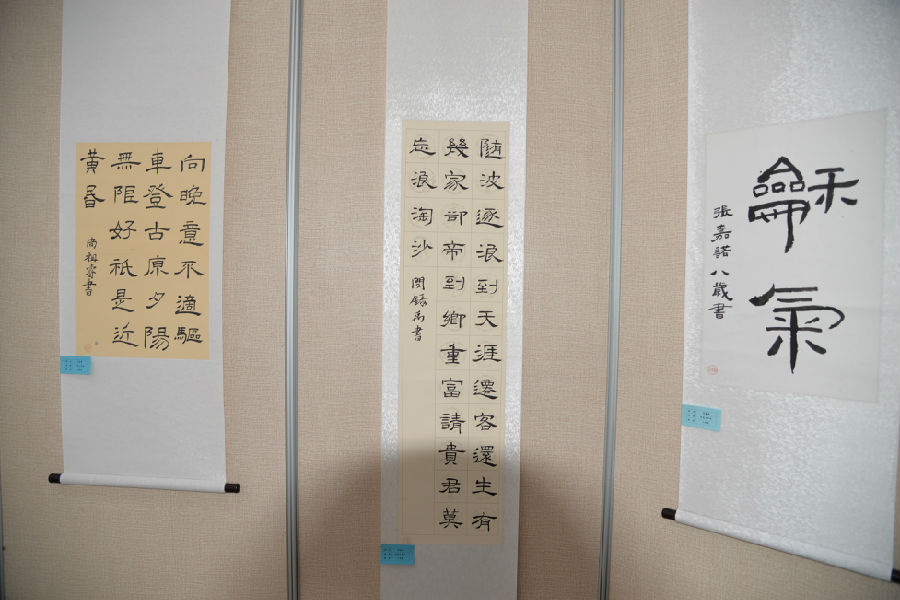 向晚意不適驅
車登古原夕陽
無限好祇是近
黃昏
尚書
随波逐浪到天涯遷客還生有
幾家却帝到鄉重富請貴君莫
忘浪淘沙
閆禹書
龢氣
張嘉諾八歲書